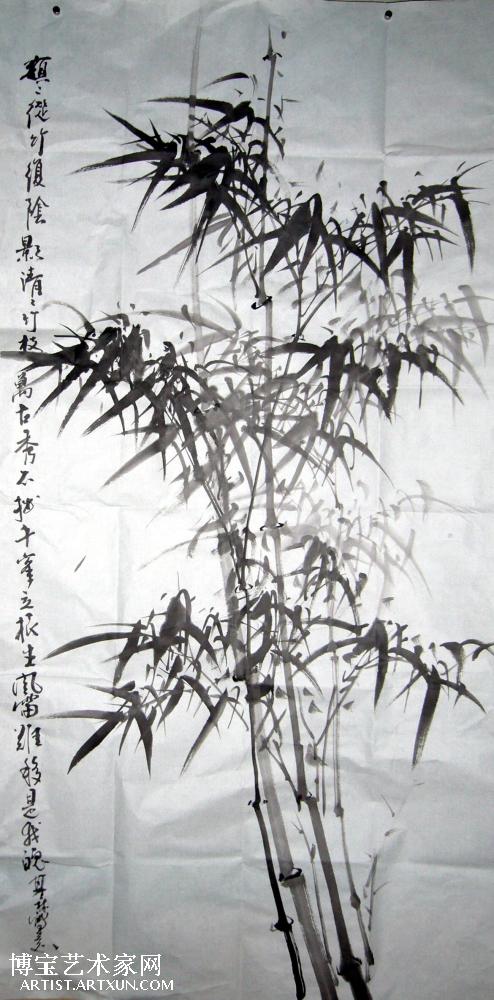 從竹復陰影清〻竹枝萬古秀不千立根生風雷難移是我魄
博宝艺术家网
ARTIST.ARTXUN.COM